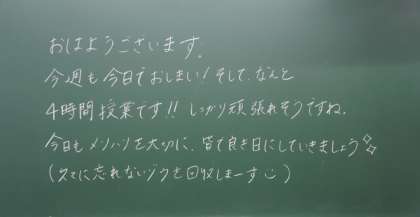 おはようございます。
今週も今日でおしまい！そして、なんと
4時間授業です!! しっかり頑張れそうですね。
今日もメリハリを大切に、皆で良き日にしていきましょう✧✧
(久々に忘れないゾウを回収しまーす☺)